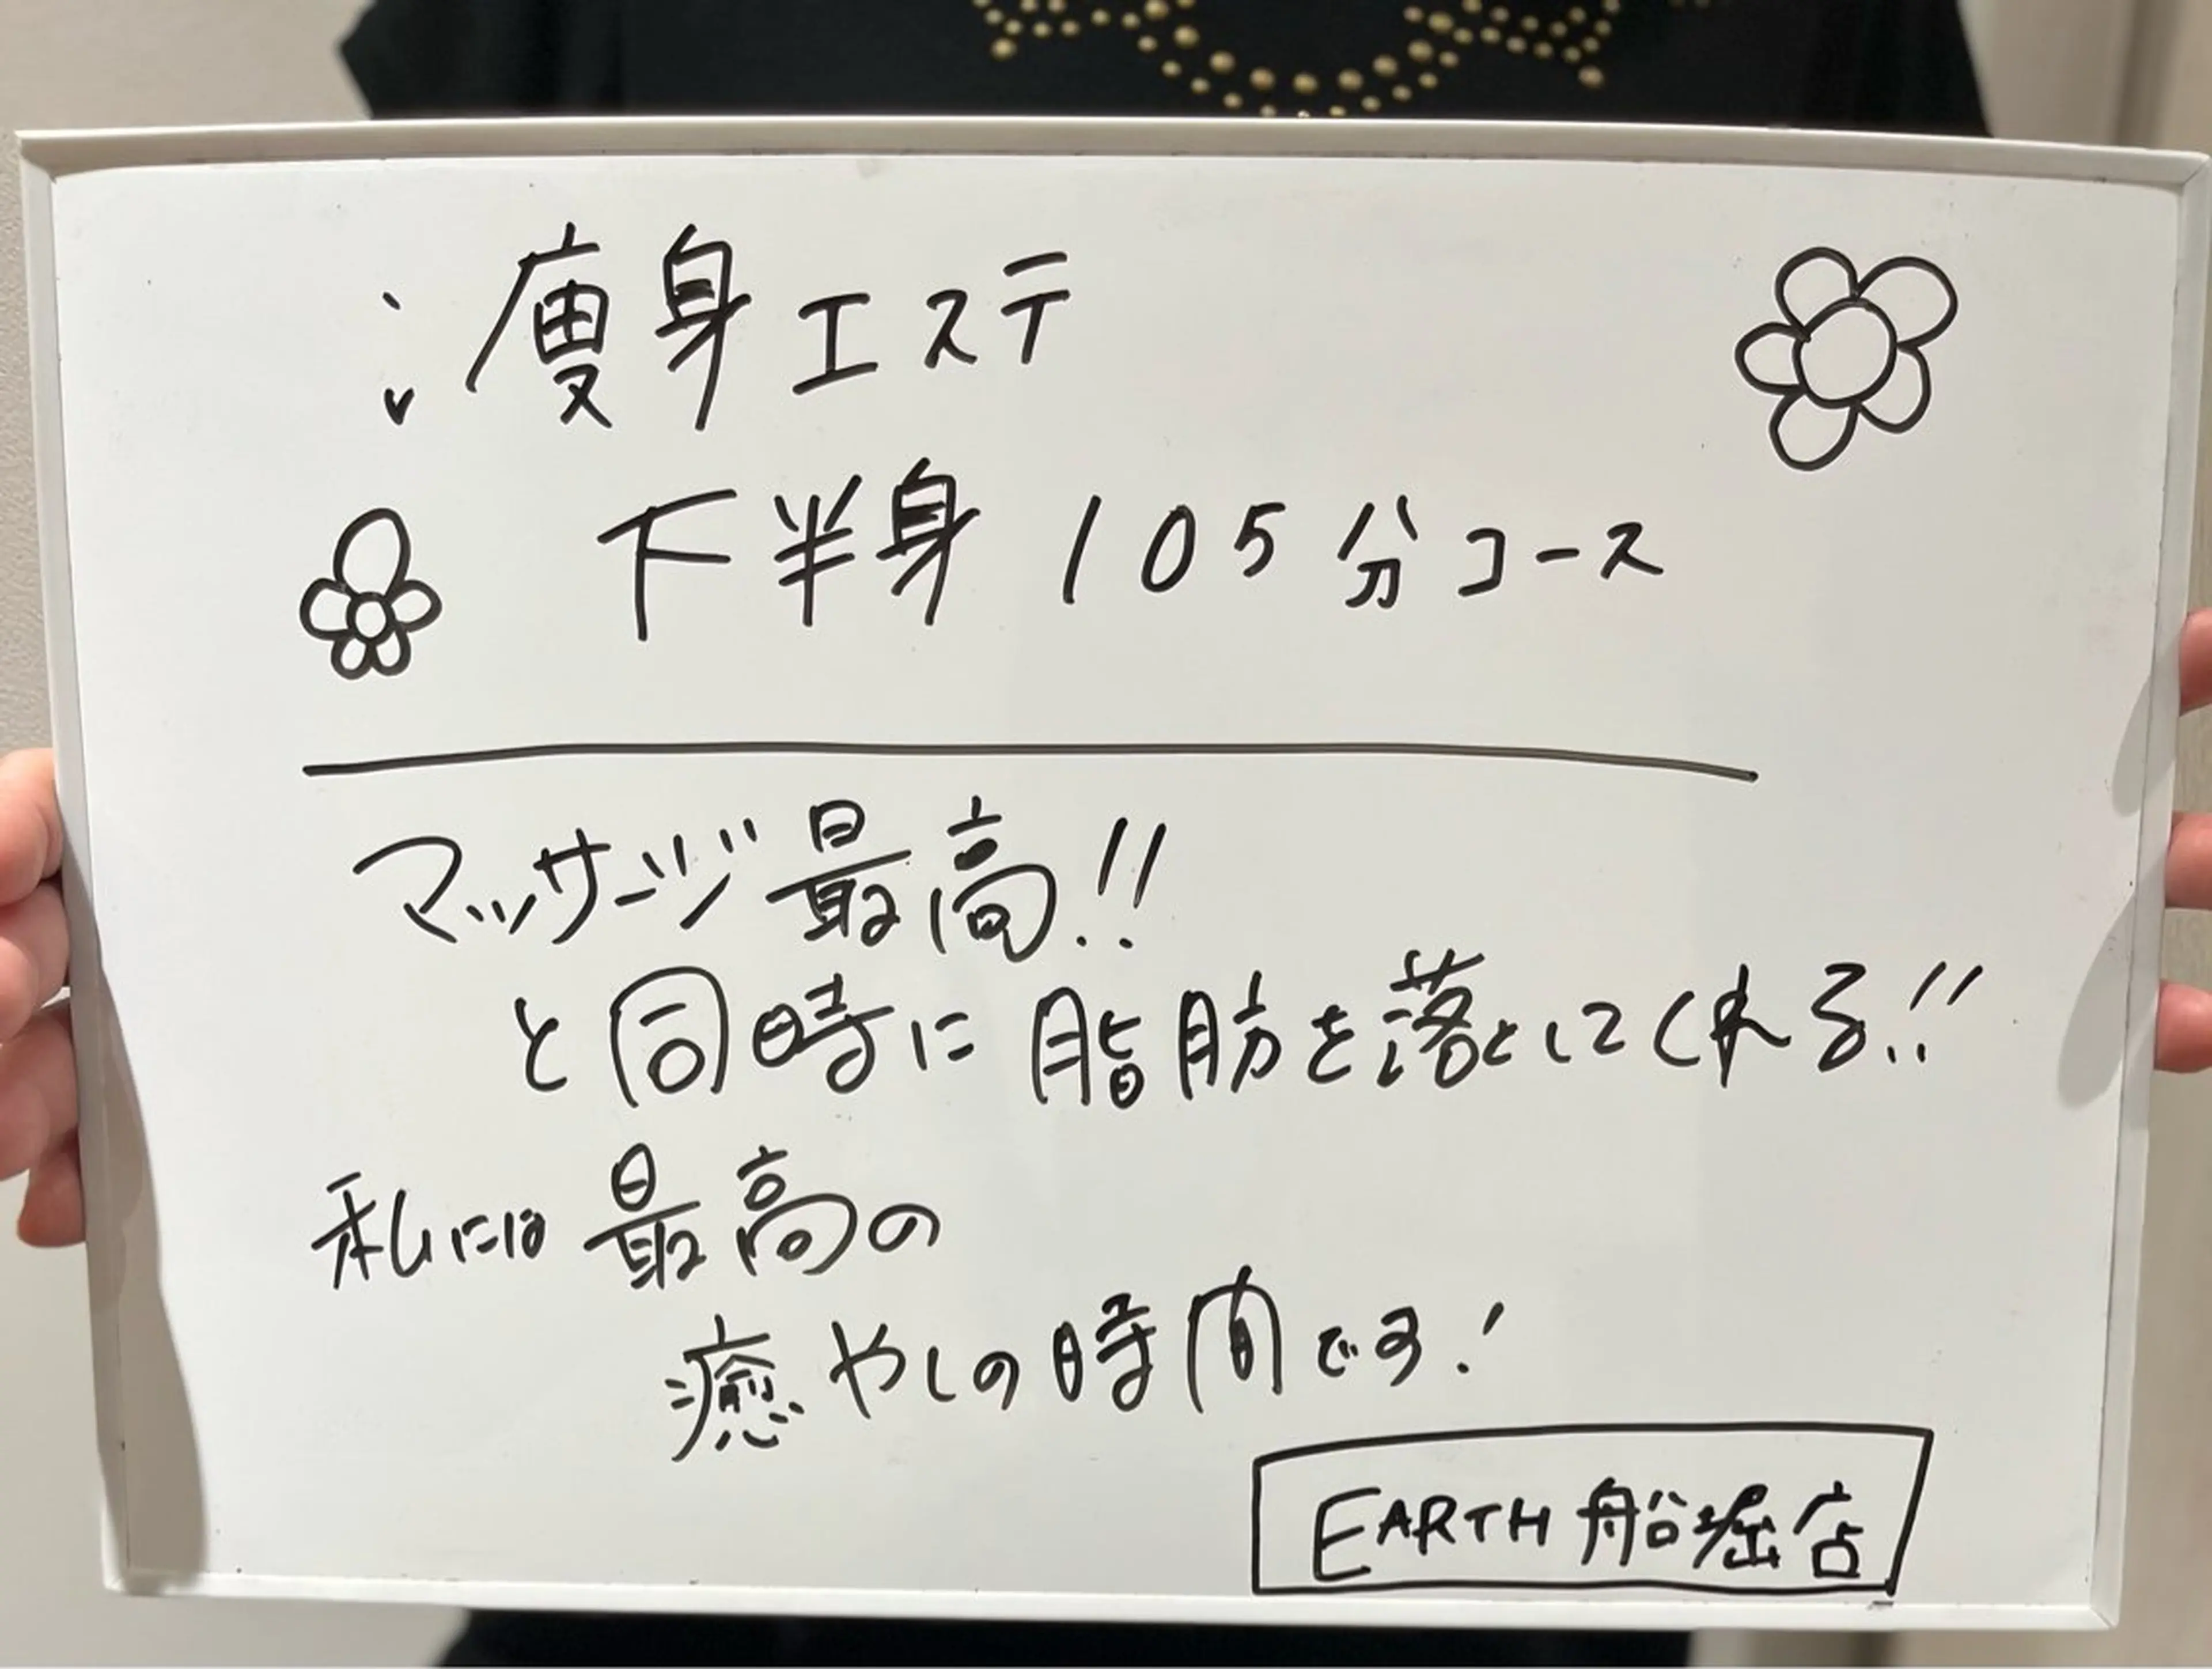 痩身エステ
下半身105分コース
マッサージ最高!!
と同時に脂肪を落としてくれる!!
私には最高の
癒やしの時間です!
EARTH 船堀店